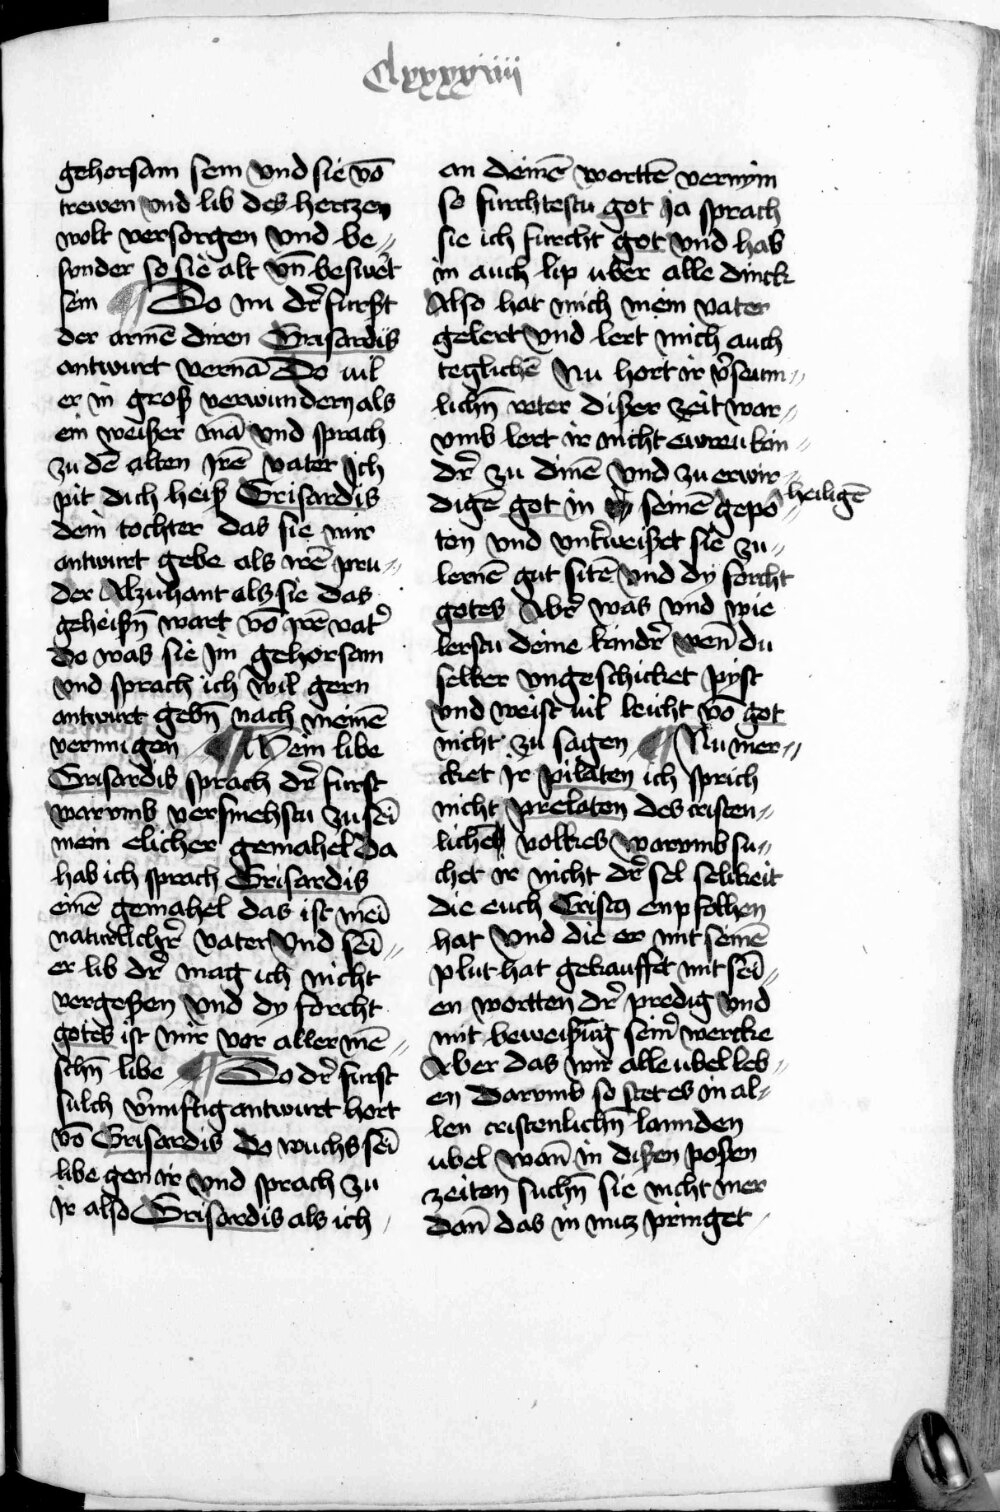 Clxxxxviiij
gehorsam sein vnd sie vō
trewen vnd lib des hertzen
wolt versorgen vnd be⸗
sonder so sie alt vn̄ beswert
sein ¶ Do nu dr̄ furst
der armē diren Grisardis
antwurt vernā Do vil
er in groß verwundern als
ein weißer mā vnd sprach
zu dē alten Irē vater Ich
pit dich heiß Grisardis
dein tochter das sie mir
antwurt gebe als irē pru⸗
der Alzuhant als sie das
geheißn̄ wart vō irē vatr̄
do was sie im gehorsam
vnd sprach ich wil gern
antwurt gebn̄ nach meinē
vermugen ¶ Mein libe
Grisardis sprach dr̄ furst
warvmb versmehstu zu sei̅
mein elicher gemahel Da
hab ich sprach Grisardis
einē gemahel das ist mei̅
naturlichr̄ vater vnd sei̅⸗
er lib dr̄ mag ich nicht
vergeßen vnd dy forcht
gotes ist mir vor aller mē⸗
schn̄ libe ¶ Do dr̄ furst
sulch v̄nunftig antwurt hort
vō Grisardis do wuchs sei̅
libe gen ir vnd sprach zu
ir also Grisardis als ich
an deinē worttē vernym
so furchtestu got Ja sprach
sie ich furcht got vnd hab
in auch lip uber alle dinck
Also hat mich mein vater
gelert vnd lert mich auch
teglichē Nu hort ir v̄seum⸗
lichn̄ veter dißer zeit war⸗
vmb lert ir nicht ewreu kin⸗
dr̄ zu dinē vnd zu erwir⸗
digē got in seinē gepo⸗
heiligē
ten vnd vntr̄weißet sie zu⸗
lernē gut sitē vnd dy forcht
gotes Abr̄ was vnd wie
lerstu deine kindr̄ wen̄ du
selber vngeschicket pyst
vnd weist vil leicht vō got
nicht zu sagen ¶ Nu mer⸗
cket Ir pilaten ich sprich
nicht prelaten des cristen⸗
lichē volkes warvmb su⸗
chet ir nicht dr̄ sel selikeit
die euch Cristus enpfolhen
hat vnd die er mit seinē
plut hat gekauffet mit sei̅⸗
en wortten dr̄ predig vnd
mit beweißūg seinr̄ wercke
Aber das wir alle ubel leb⸗
en Darvmb so stet es in al⸗
len cristenlichn̄ lannden
ubel wan̄ in dißen posen
zeiten suchn̄ sie nicht mer
dan̄ das in nutz pringet